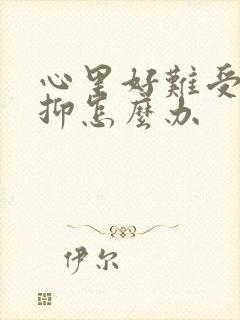 心里好難受
抑怎麼办
伊尔